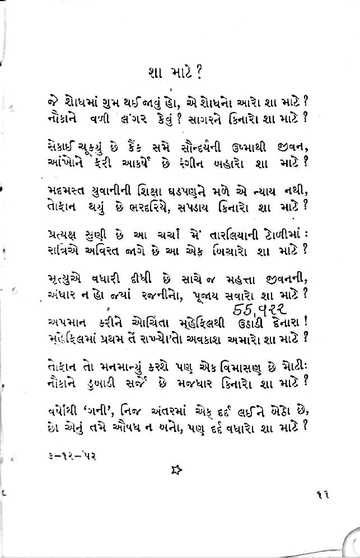 શા માટે?
જે શોધમાં ગુમ થઈ જાવું હો, એ શોધનો આરો શા માટે?
નૌકાને વળી લંગર કેવું? સાગરને કિનારો શા માટે?
સેકાઈ ચૂક્યું છે કૈંક સમે સૌન્દર્યની ઉષ્માથી જીવન,
આંખોને ફરી આકર્ષે છે રંગીન બહારો શા માટે?
મદમસ્ત યુવાનીની શિક્ષા ઘડપણને મળે એ ન્યાય નથી,
તોફાન થયું છે ભરદરિયે, સપડાય કિનારો શા માટે?
પ્રત્યક્ષ સુણી છે આ ચર્ચા મેં તારલિયાની ટોળીમાં:
રાત્રિએ અવિરત જાગે છે આ એક બિચારો શા માટે?
મૃત્યુએ વધારી દીધી છે સાચે જ મહત્તા જીવનની,
અંધાર ન હો જ્યાં રજનીનો, પૂજાય સવારો શા માટે?
55,922
અપમાન કરીને ઓચિંતા મહેફિલથી ઉઠાડી દેનારા!
મહેફિલમાં પ્રથમ તેં રાખ્યો'તો અવકાશ અમારો શા માટે?
તોફાન તો મનમાન્યું કરશે પણ એક વિમાસણ છે મોટી:
નૌકાને ડુબાડી સર્જે છે મજધાર કિનારો શા માટે?
વર્ષોથી ‘ગની’, નિજ અંતરમાં એક દર્દ લઈને બેઠો છે,
છો એનું તમે ઔષધ ન બનો, પણ દર્દ વધારો શા માટે?
૩-૧૨-'૫૨
૧૩